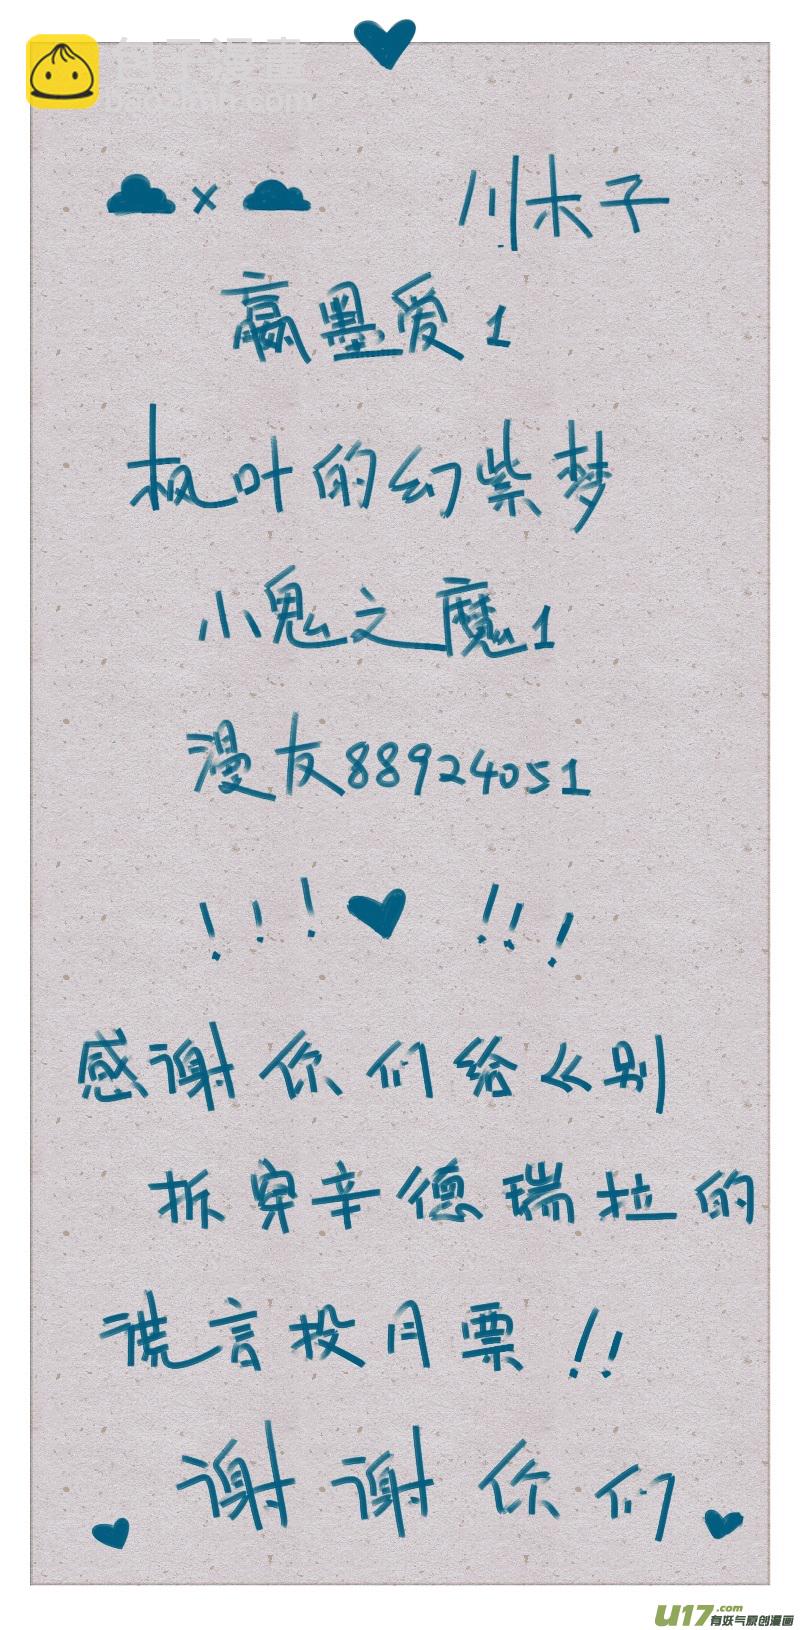 包子漫畫
baozimh.com
× 川木子
嬴墨爱1
枫叶的幻紫梦
小鬼之魔1
漫友88924051
!!! !!!
感谢你们给《别
拆穿辛德瑞拉的
谎言投月票!!
谢谢你们
U17.com
有妖气原创漫画